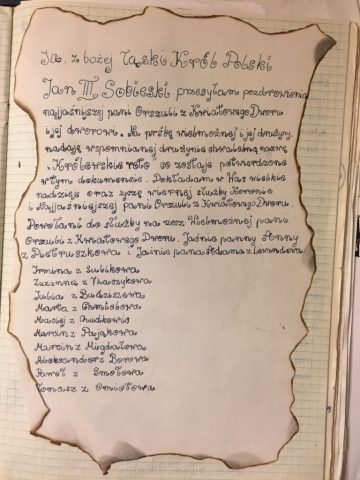 Ja, z bożej łaski Król Polski
Jan III Sobieski przesyłam pozdrowienia
najjaśniejszej pani Orszuli z Kwiatowego Dworu
i jej dworowi. Na prośbę wielmożnej i jej drużyny.
nadaję wspomnianej drużynie chwalebną nazwę
„Królewskie                " co zostaje potwierdzone
w tym dokumencie. Pokładam w Was wielkie
nadzieje oraz życzę wiernej służby Koronie
i Najjaśniejszej pani Orszuli z Kwiatowego Dworu.
Powołani do służby na rzecz Wielmożnej pani
Orszuli z Kwiatowego Dworu. Jaśnie panny Anny
z Pietruszkowa i Jaśnie pana Adama z Lawendowa:
Irmina z Subikowa
Zuzanna z Tkaczykowa
Julia z Budziszewa
Marta z Chmielowa
Maciej z Chudkowa
Marcin z Pająkowa
Marcin z Migdałowa
Aleksander z Borowa
Paweł z Smołowa
Tomasz z Omiotowa